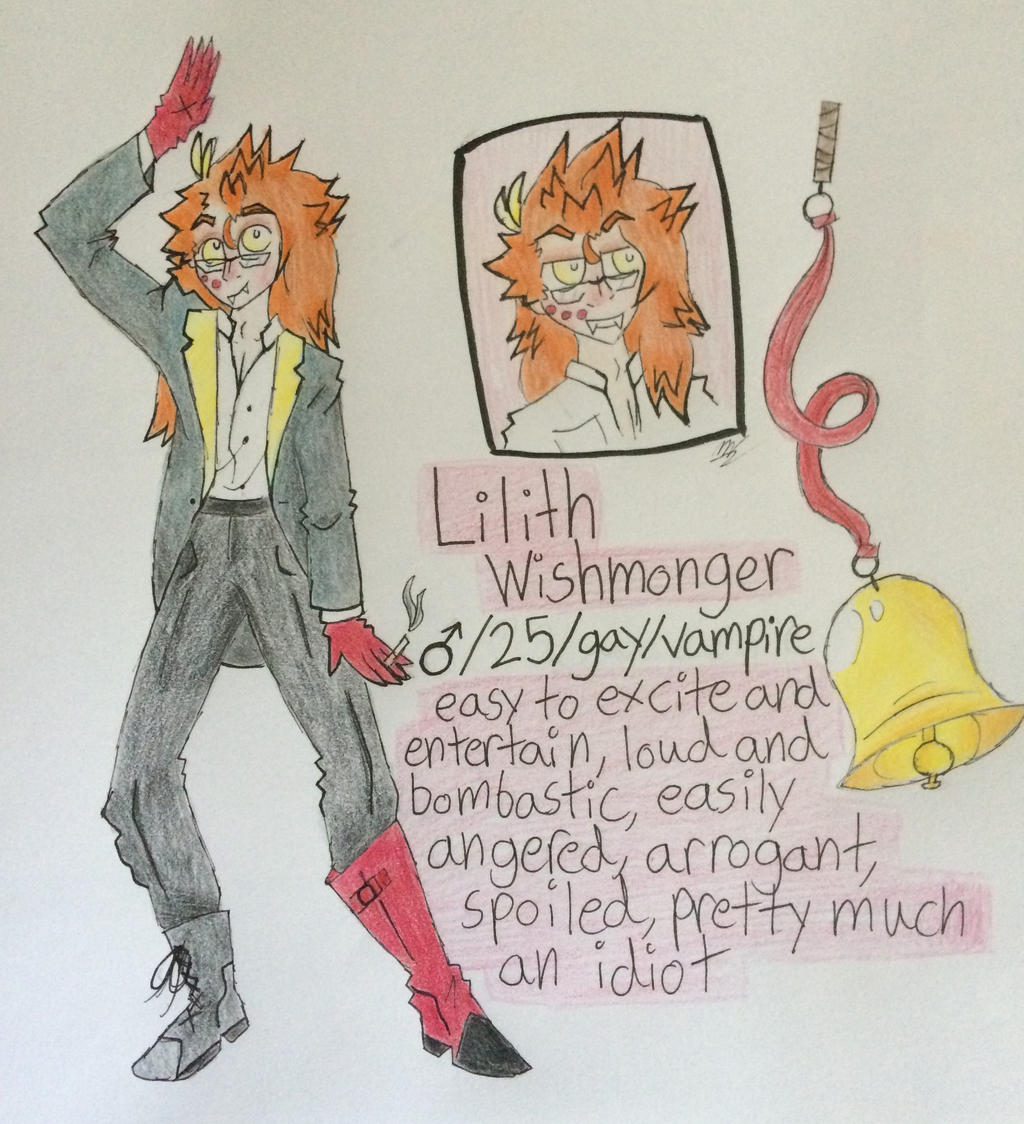 Lilith
Wishmonger
♂/25/gay/vampire
easy to excite and
entertain, loud and
bombastic, easily
angered, arrogant,
spoiled, pretty much
an idiot